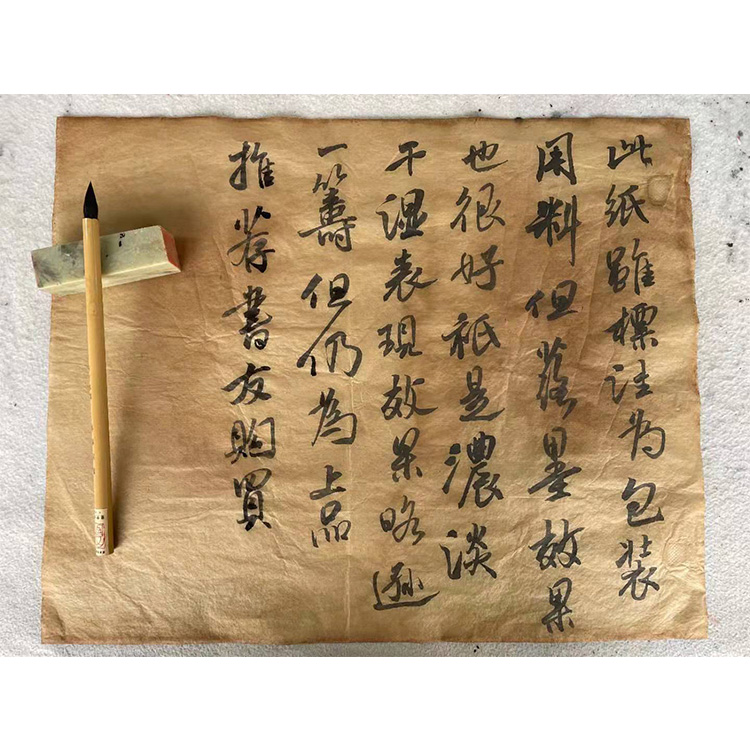 此紙雖標註为包裝
用料但落墨效果
也很好祇是濃淡
干湿表現效果略遜
一籌但仍為上品
推荐書友购買